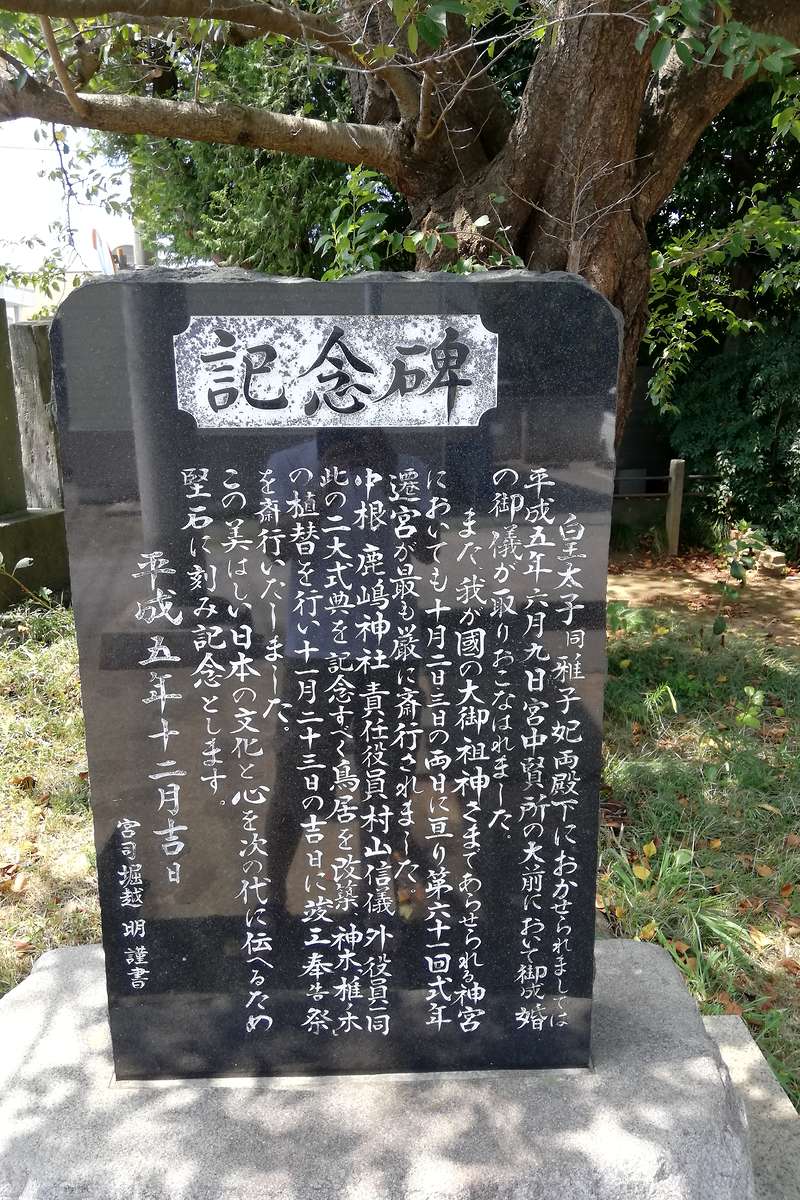 記念碑
皇太子同雅子妃両殿下におかせられましては
平成五年六月九日宮中賢所の大前において御成婚
の御儀が取りおこなはれました。
また、我が國の大御祖神さまであらせられる神宮
においても十月二日三日の両日に亘り第六十一回式年
遷宮が最も厳に斎行されました。
中根 鹿嶋神社 責任役員 村山信儀 外役員一同
此の二大式典を記念すべく鳥居を改築、神木、椎ノ木
の植替を行い十一月二十三日の吉日に竣工奉告祭
を斎行いたしました。
この美はしい日本の文化と心を次の代に伝へるため
堅石に刻み記念とします。
平成五年十二月吉日
宮司 堀越 明 謹書